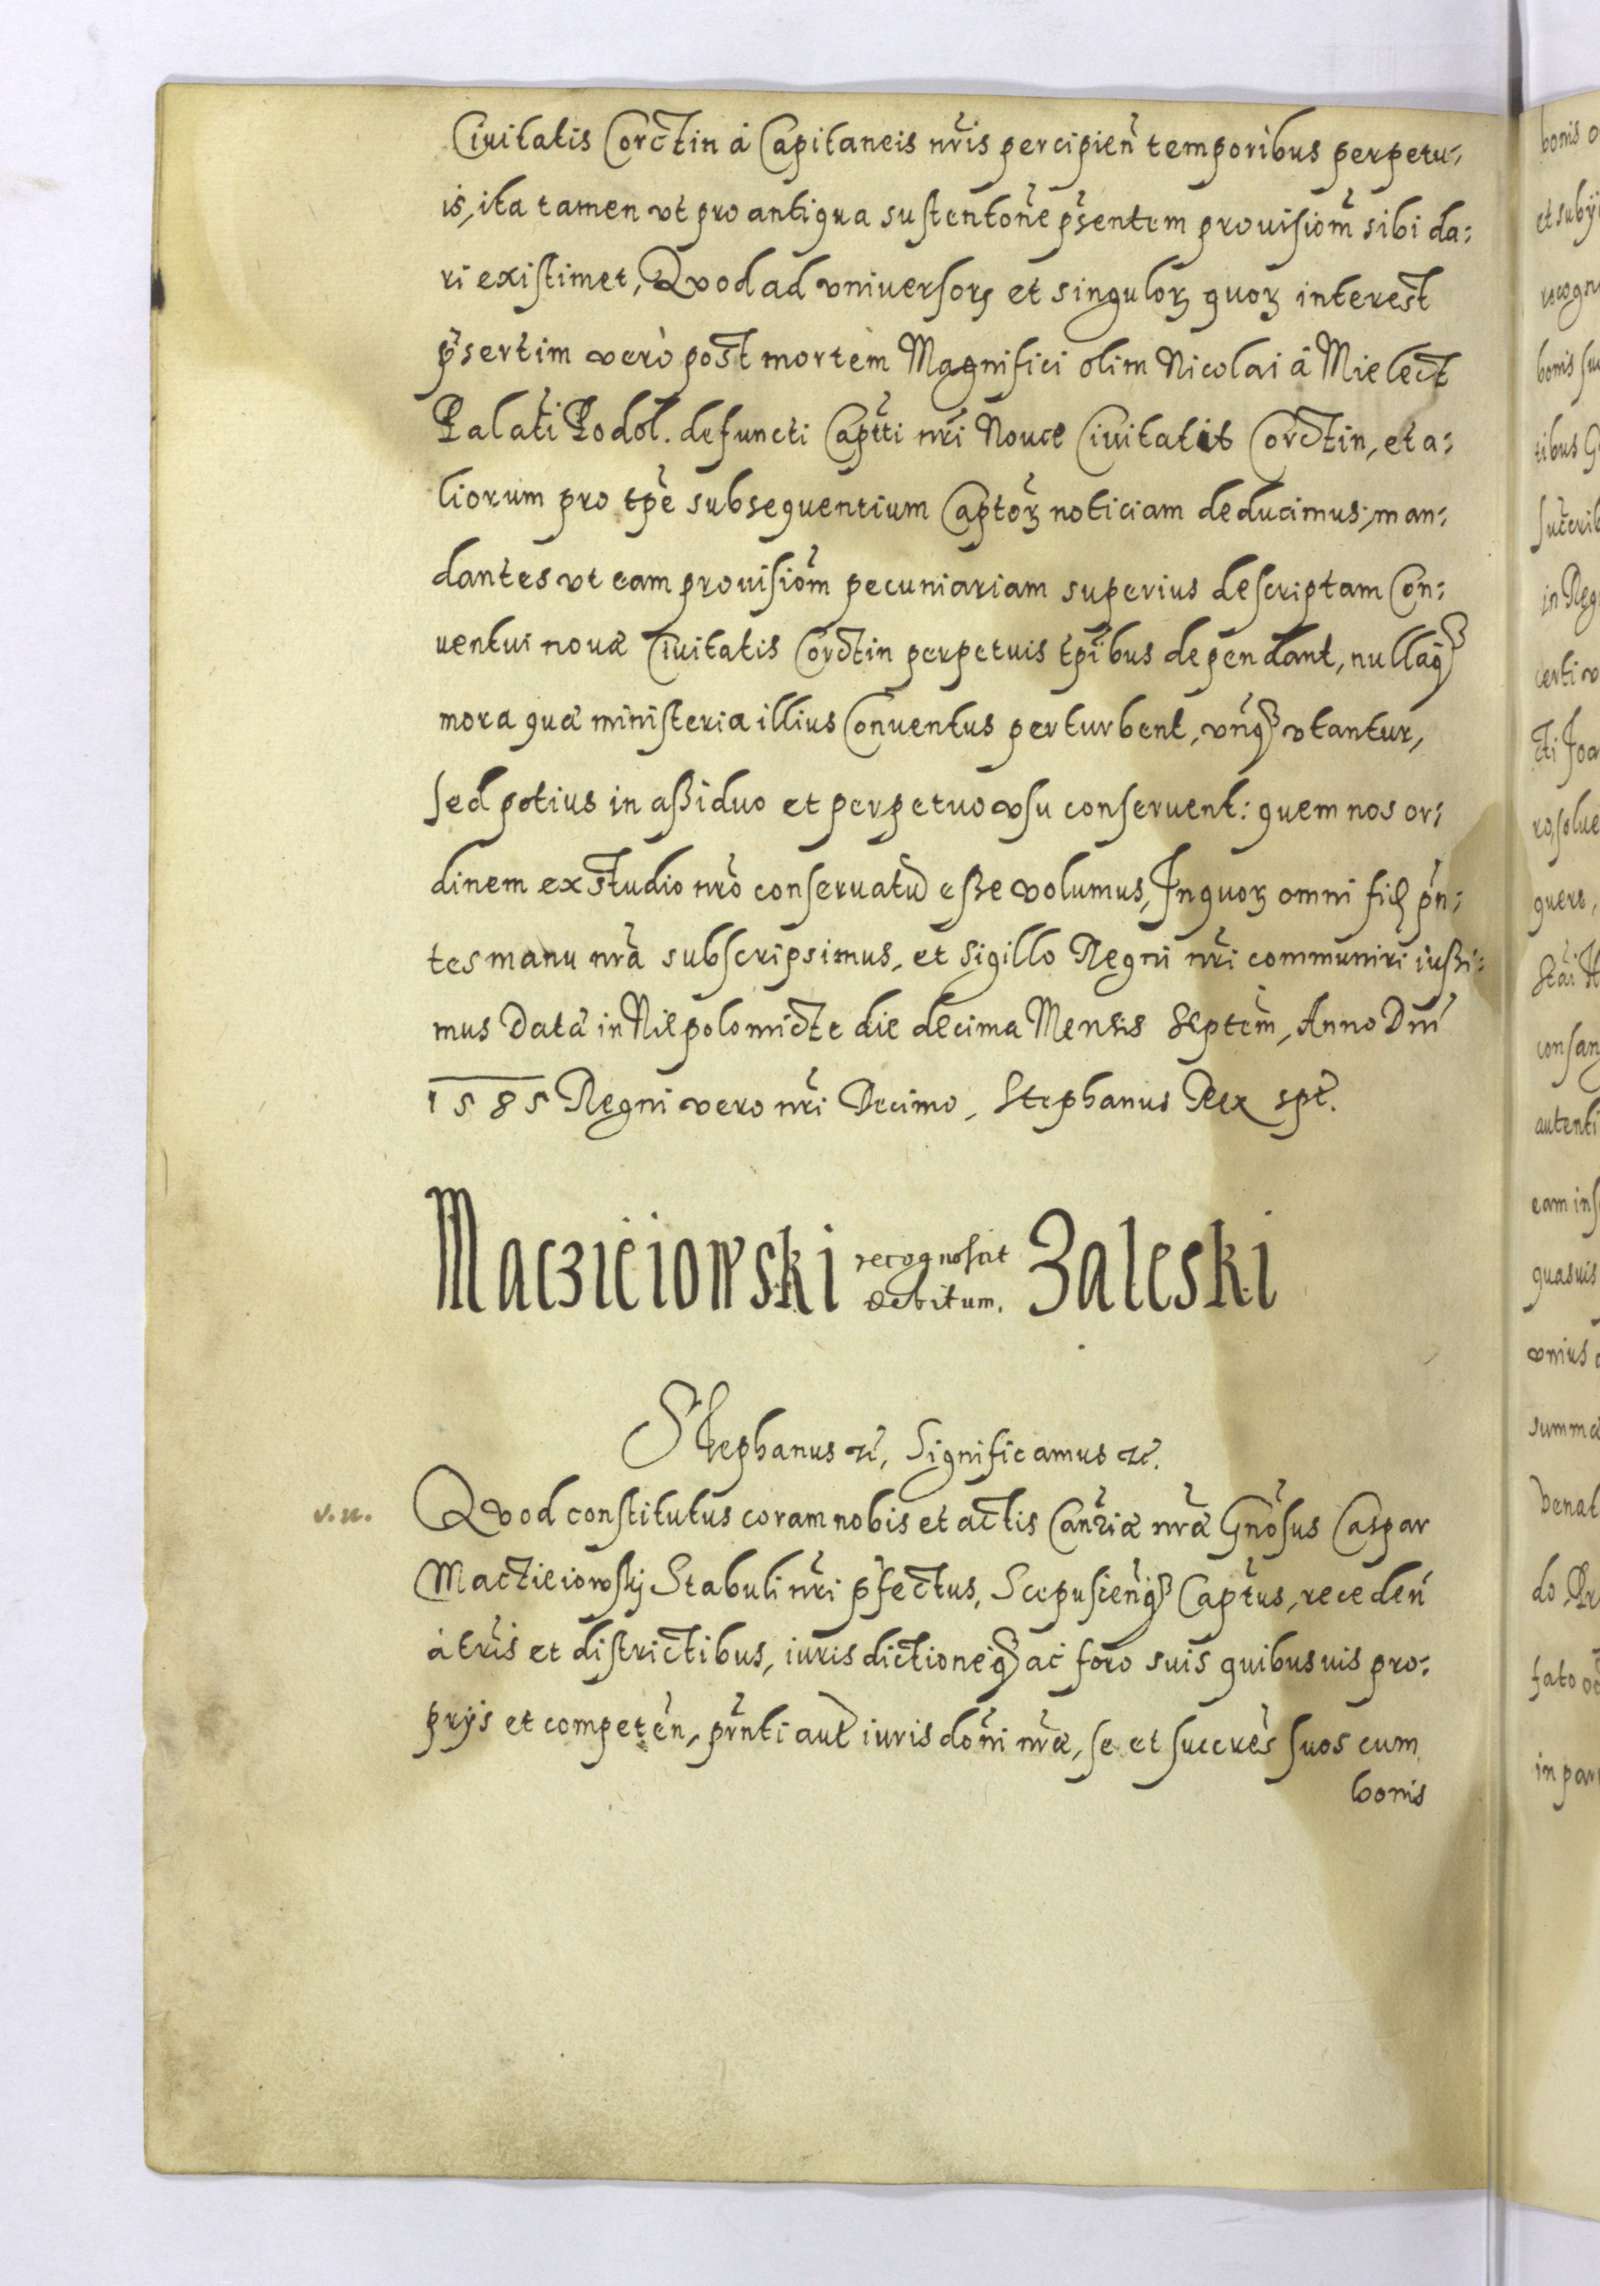 Ciuitatis Corctin á Capitaneis nr̃is percipien̄ temporibus perpetu:
is, ita tamen vt pro antiqua sustenton̄e p̄sentem prouisiom̄ sibi da:
ri existimet, Qvod ad vniversorꝫ et singulorꝫ quorꝫ interest
p̄sertim verò post mortem Magnifici olim Nicolai á Mielect
Palati Podol. defuncti Captti nr̃i Nouæ Ciuitatis Corctin, et a:
liorum pro tp̄e subsequentium Captorꝫ noticiam deducimus, man:
dantes vt eam prouisiom̄ pecuniariam superius descriptam Con:
uentui nouæ Ciuitatis Corctin perpetuis tp̄ibus dependant, nullaqꝫ
mora quæ ministeria illius Conuentus perturbent, vn̄qꝫ vtantur,
sed potius in aßiduo et perpetuo vsu conseruent: quem nos or:
dinem ex studio nr̃o conseruatū eße volumus, In quorꝫ omni fiđ p̄n:
tes manu nr̃a subscripsimus, et Sigillo Regni nr̃i communiri iußi:
mus Data in Niepolomicte die decima Mensis Septem̄, Anno Dnī
1585 Regni vero nr̃i Decimo, Stephanus Rex spt̄.
Maczieiowski recognoscit Zaleski
debitum.
Stephanus ꝛc̄, Significamus ꝛc̄.
v. u. Qvod constitutus coram nobis et actis Canr̃iæ nr̃æ Gnōsus Caspar
Mactieiowskj Stabuli nr̃i p̄fectus, Scepusien̄qꝫ Captus, receden̄
á tr̃is et districtibus, iurisdictioneqꝫ ac foro suis quibusuis pro:
prijs et competen̄, pr̄nti aut iurisdon̄i nr̃æ, se et succr̄es suos cum
bonis